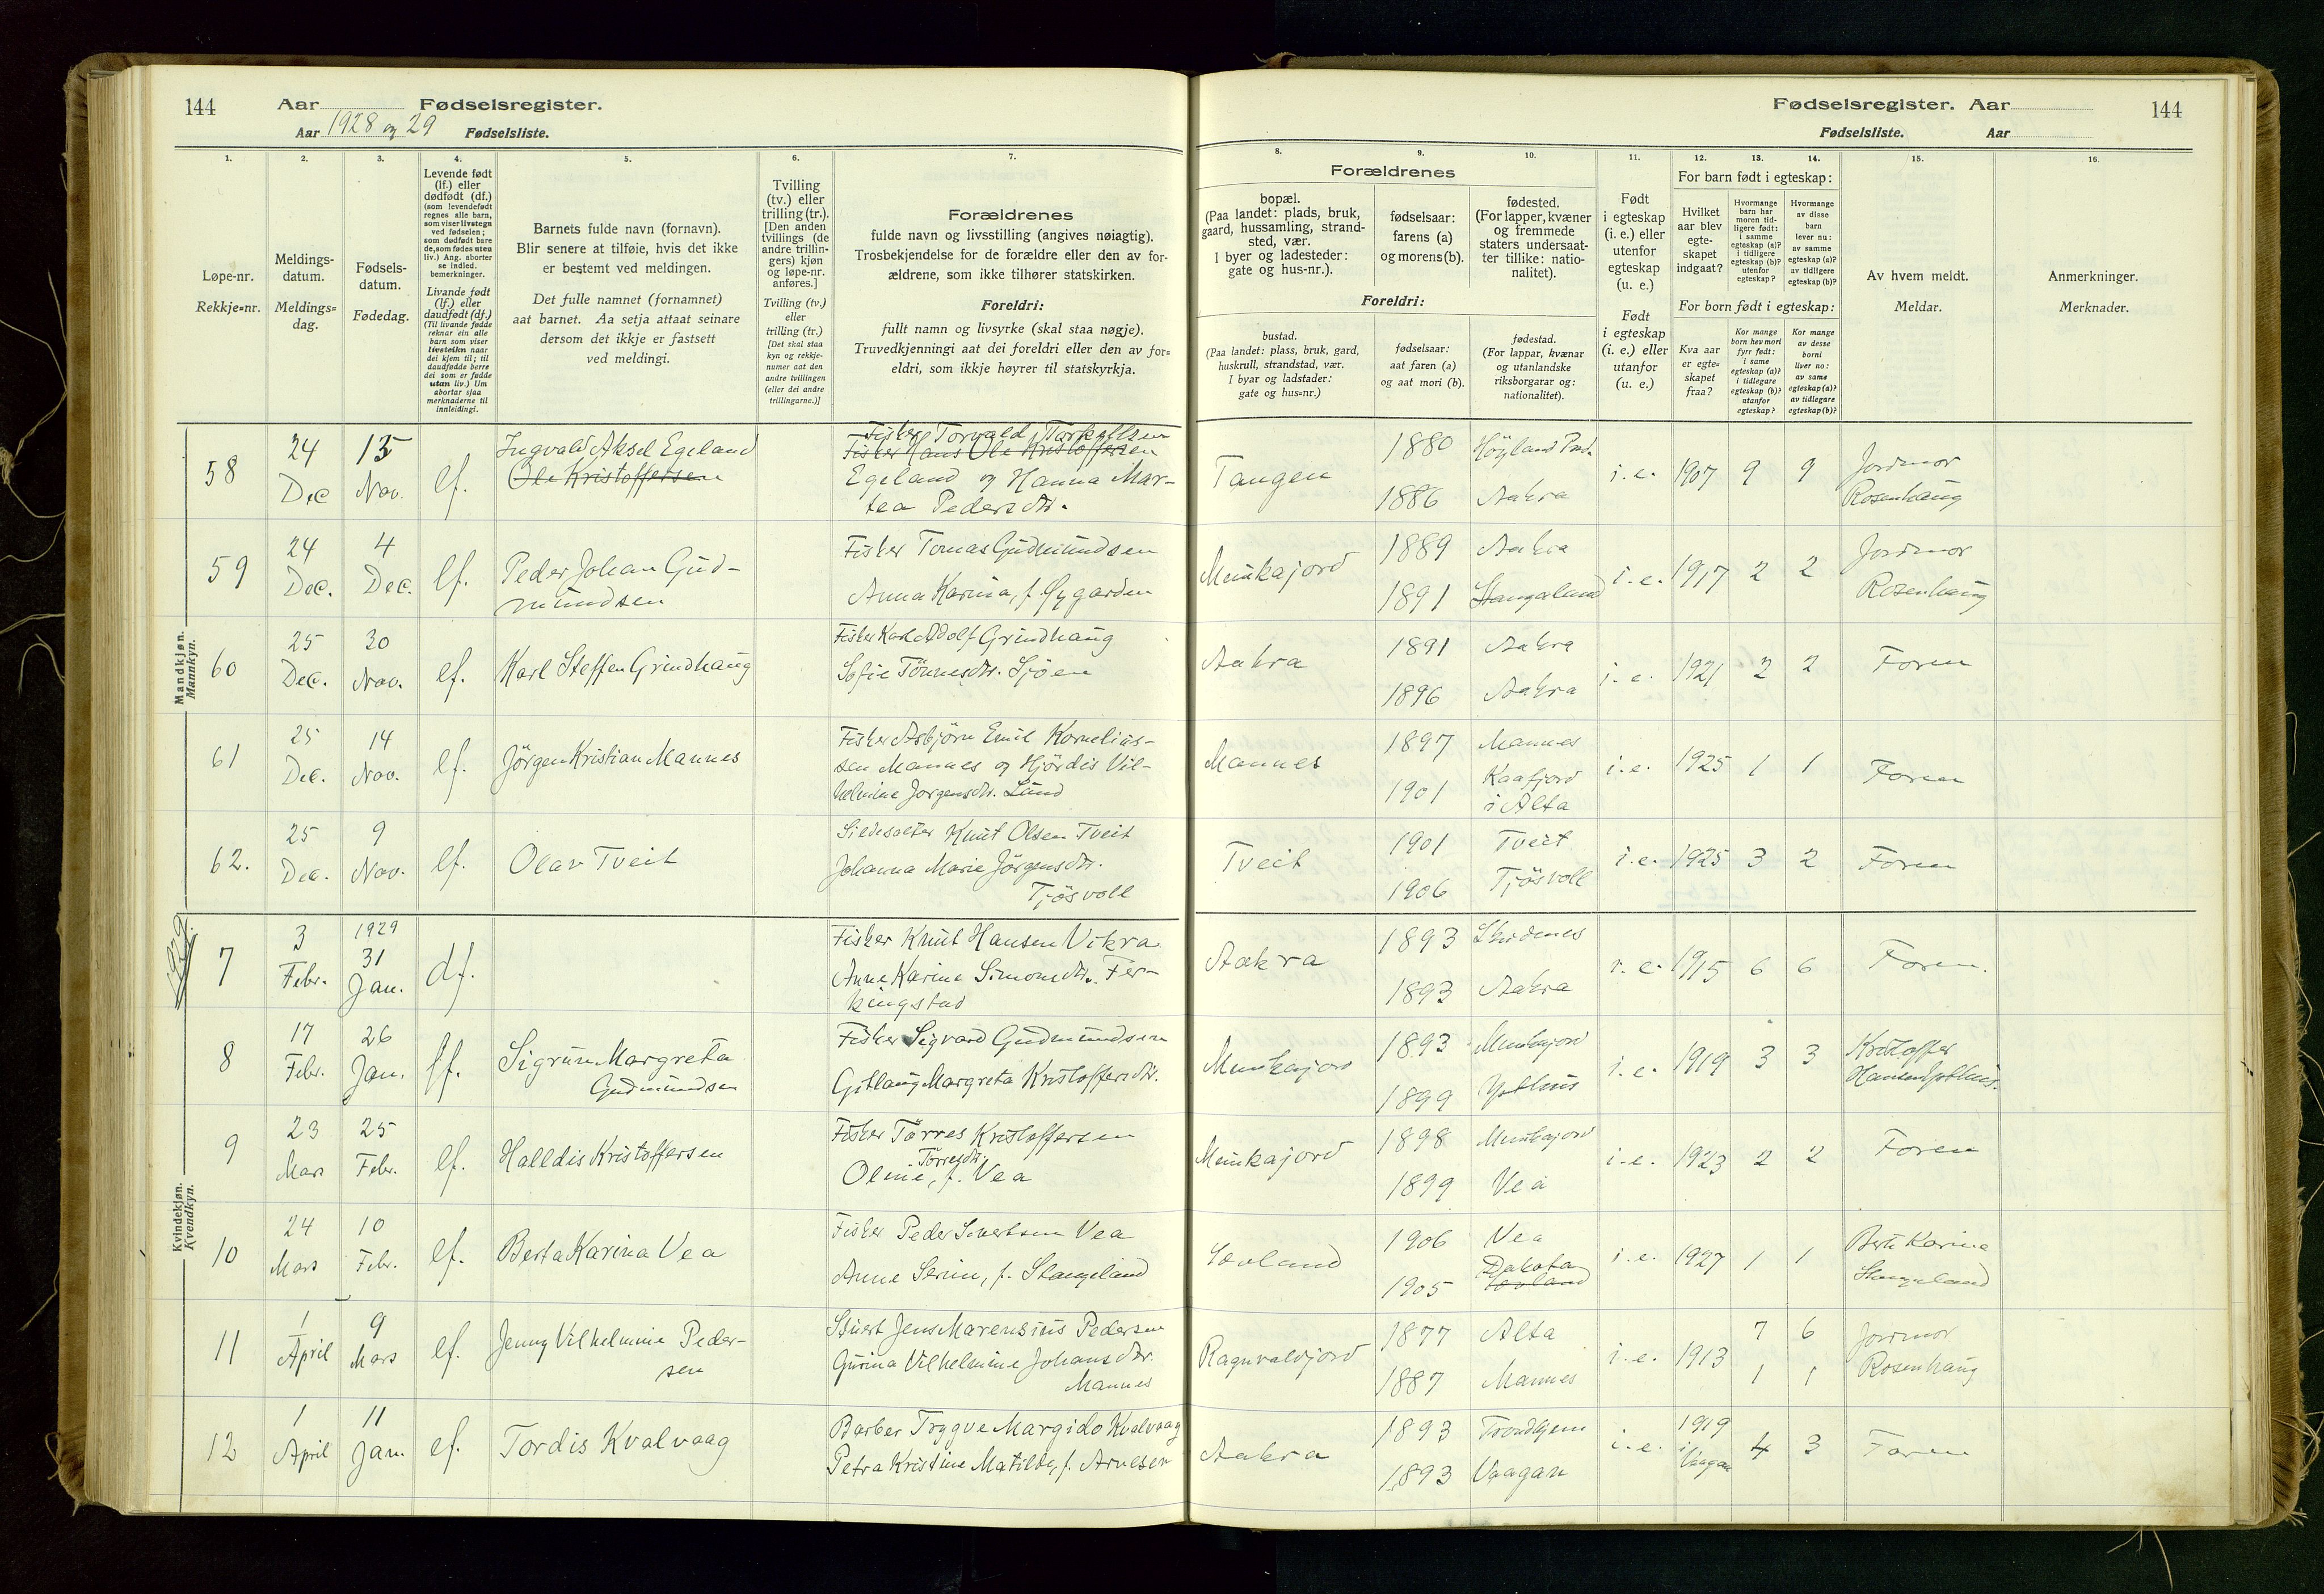 144 Aar Fødselsregister.
Aar 1928 og 29 Fødselsliste.
Fødselsregister. Aar 144
Fødselsliste. Aar
1.
Løpe-nr.
Rekkje=nr.
2.
Meldings-
datum.
Meldings=
dag.
3.
Fødsels-
datum.
Fødedag.
4.
Levende født
(lf.) eller
dødfødt (df.)
(som levendefødt
regnes alle barn,
som viser livstegn
ved fødselen;
som dødfødt bare
de, som fødes uten
liv.) Ang. aborter
se indled.
bemerkninger.
Livande født
(lf.) eller
daudfødt (df.)
(Til livande fødde
reknar ein alle
barn som viser
livsteikn naar
dei kjem til; til
daudfødde berre
dei som er fødde
utan liv.) Um
abortar sjaa
merknaderne til
innleidingi.
5.
Barnets fulde navn (fornavn).
Blir senere at tilføie, hvis det ikke
er bestemt ved meldingen.
Det fulle namnet (fornamnet)
aat barnet. Aa setja attaat seinare
dersom det ikkje er fastsett
ved meldingi.
6.
Tvilling
(tv.) eller
trilling (tr.).
[Den anden
tvillings (de
andre trillin-
gers) kjøn
og løpe-nr.
anføres.]
Tvilling (tv.)
eller
trilling (tr.)
[Det skal staa
kyn og rekkje-
numer aat den
andre tvillingen
(eller dei andre
trillingarne.)]
7.
Forældrenes
fulde navn og livsstilling (angives nøiagtig).
Trosbekjendelse for de forældre eller den av for-
ældrene, som ikke tilhører statskirken.
Foreldri:
fullt namn og livsyrke (skal staa nøgje).
Truvedkjenningi aat dei foreldri eller den av for=
eldri, som ikkje høyrer til statskyrkja.
8.
Forældrenes
bopæl.
(Paa landet: plads, bruk,
gaard, hussamling, strand-
sted, vær.
I byer og ladesteder:
gate og hus-nr.).
Foreldri:
bustad.
(Paa landet: plass, bruk, gard,
huskrull, strandstad, vær.
I byar og ladstader:
gate og hus=nr.)
9.
fødselsaar:
farens (a)
og morens (b).
fødselsaar:
aat faren (a)
og aat mori (b).
10.
fødested.
(For lapper, kvæner
og fremmede
staters undersaat-
ter tillike: natio-
nalitet).
fødestad.
(For lappar, kvænar
og utanlandske
riksborgarar og:
nationalitet).
11.
Født
i egteskap
(i. e.) eller
utenfor
egteskap
(u. e.)
Født
i egteskap
(i. e.) eller
utanfor
(u. e.)
12.
For barn født i egteskap:
Hvilket
aar blev
egte-
skapet
indgaat?
For born født i egteskap:
Kva aar
er egte=
skapet
fraa?
13.
Hvormange
barn har
moren tid-
ligere født:
i samme
egteskap (a)?
i tidligere
egteskap (b)?
utenfor
egteskap?
Kor mange
born hev mori
fyrr født:
i same
egteskap (a)?
i tidlegare
egteskap (b)?
utanfor
egteskap?
14.
Hvormange
av disse
barn
lever nu:
av samme
egteskap (a)?
av tidligere
egteskap (b)?
Kor mange
av desse
borni
liver no:
av same
egteskap (a)?
av tidlegare
egteskap (b)?
15.
Av hvem meldt.
Meldar.
16.
Anmerkninger.
Merknader.
Mandkjøn.
Mannkyn.
58
24
Dec
15
Nov.
lf.
Ingvald Aksel Egeland
Ole Kristoffersen
Fisker Torvald Torkellsen
Fisker Hans Ole Kristoffersen
Egeland og Hanna Mar-
tea Pedersdtr.
Tangen
1880
1886
Høyland
Aakra
i. e. 1907 9 9
Jordmor
Rosenhaug
59
24
Dec.
4
Dec.
lf.
Peder Johan Gud-
mundsen
Fisker Tomas Gudmundsen
Anna Karina, f. Gygarden
Munkajord
1889
1891
Aakra
Stangaland
i. e. 1917 2 2
Jordmor
Rosenhaug
60
25
Dec.
30
Nov.
lf.
Karl Steffen Grindhaug
Fisker Karl Adolf Grindhaug
Sofie Tönnesdtr. Sjöen
Aakra
1891
1896
Aakra
Aakra
i. e. 1921 2 2
Faren
61
25
Dec.
14
Nov.
lf.
Jörgen Kristian Mannes
Fisker Asbjörn Emil Kornelius-
sen Mannes og Hjördis Vil-
helmine Jorgensdtr. Lund
Mannes
1897
1901
Mannes
Kaafjord
i Alta
i. e. 1925 1 1
Faren
62.
25
Dec.
9
Nov.
lf.
Olav Tveit
Sildesalter Knut Olsen Tveit
Johanna Marie Jörgensdtr.
Tjösvoll
Tveit
1901
1906
Tveit
Tjösvoll
i. e. 1925 3 2
Faren
1929.
Kvindekjøn.
Kvendkyn.
7
3
Febr.
1929
31
Jan.
df.
Fisker Knut Hansen Vikra
Anne Karine Simonsdtr. Fer-
kingstad
Aakra
1893
1893
Skudenes
Aakra
i. e. 1915 6 6
Faren.
8
17
Febr.
26
Jan.
lf.
Sigrun Margreta
Gudmundsen
Fisker Sigvard Gudmundsen
Gitlaug Margreta Kristoffersdtr.
Munkajord
1893
1899
Munkajord
i. e. 1919 3 3
Kristoffer
Hansen
9
23
Mars
25
Febr.
lf.
Halldis Kristoffersen
Fisker Törres Kristoffersen
Törresdtr.
Oline, f. Vea
Munkajord
1898
1899
Munkajord
Vea
i. e. 1923 2 2
Faren
10
24
Mars
10
Febr.
lf.
Berta Karina Vea
Fisker Peder Sivertsen Vea
Anne Serine, f. Stangeland
Sovland
1906
1905
Vea
Dakota
Sovland
i. e. 1927 1 1
Karina
Stangeland
11
1
April
9
Mars
lf.
Jenny Vilhelmine Peder-
sen
Stuert Jens Marensius Pedersen
Gurina Vilhelmine Johansdtr.
Mannes
Ragnvaldjord
1877
1887
Alta
Mannes
i. e. 1913
7 6
1 1
Jordmor
Rosenhaug
12
1
April
11
Jan.
lf.
Tordis Kvalvaag
Barber Trygve Margido Kvalvaag
Petra Kristine Matilde, f. Arnesen
Aakra
1893
1893
Trondhjem
Vaagan
i. e.
1919
i Vaagan
4 3
Faren